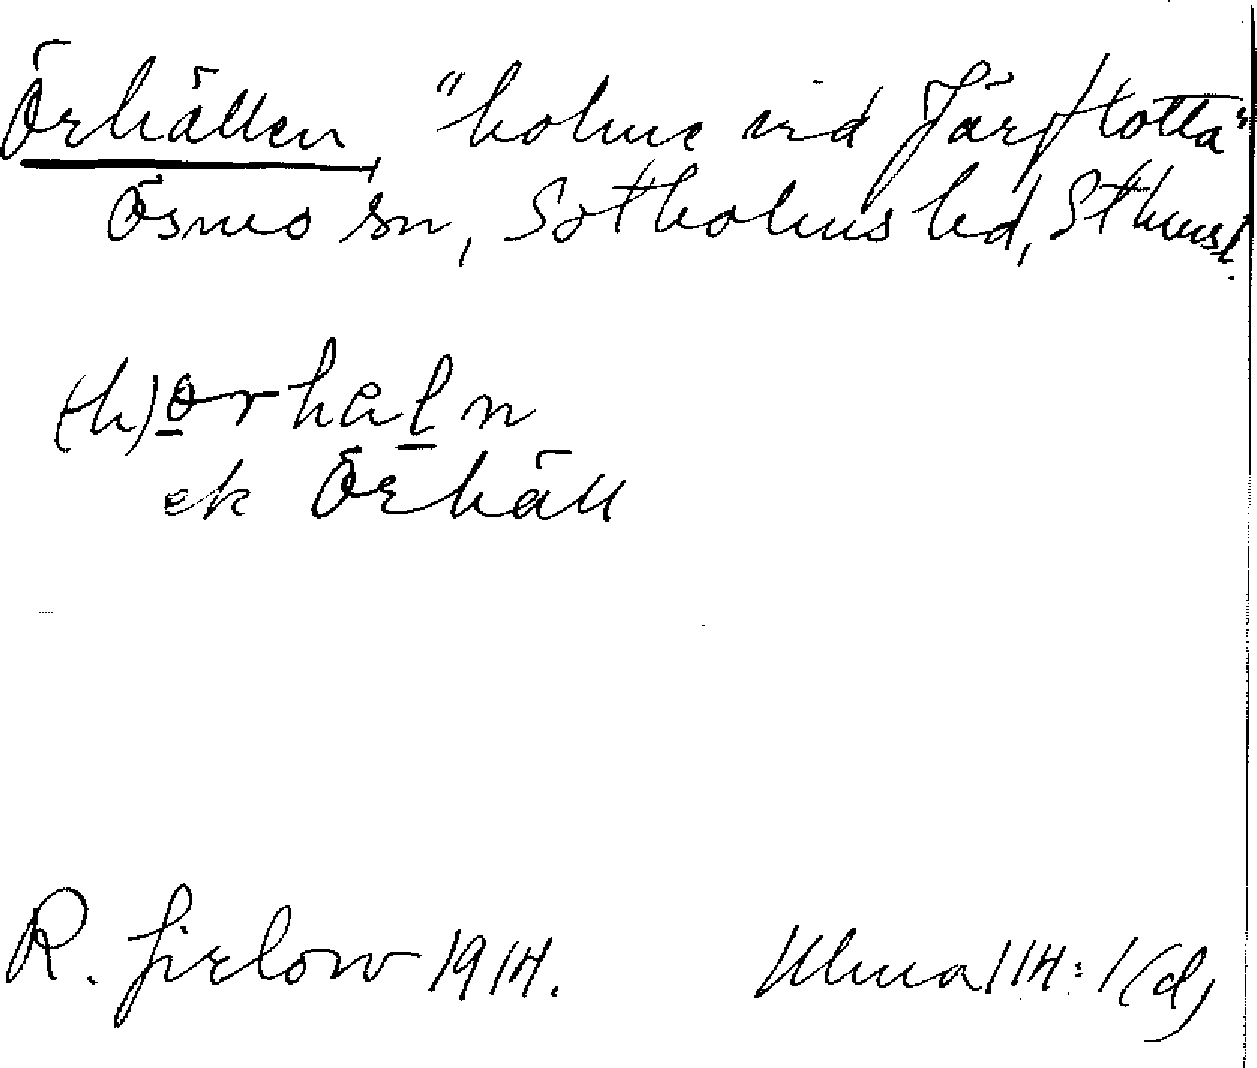 Örhällen, "holme vid Järflotta"
Ösmo sn, Sotholms hd, Sthmsl.
(h)ørhaln
ek Örhäll
R. Jirlow 1914. Ulma 114:1(d)